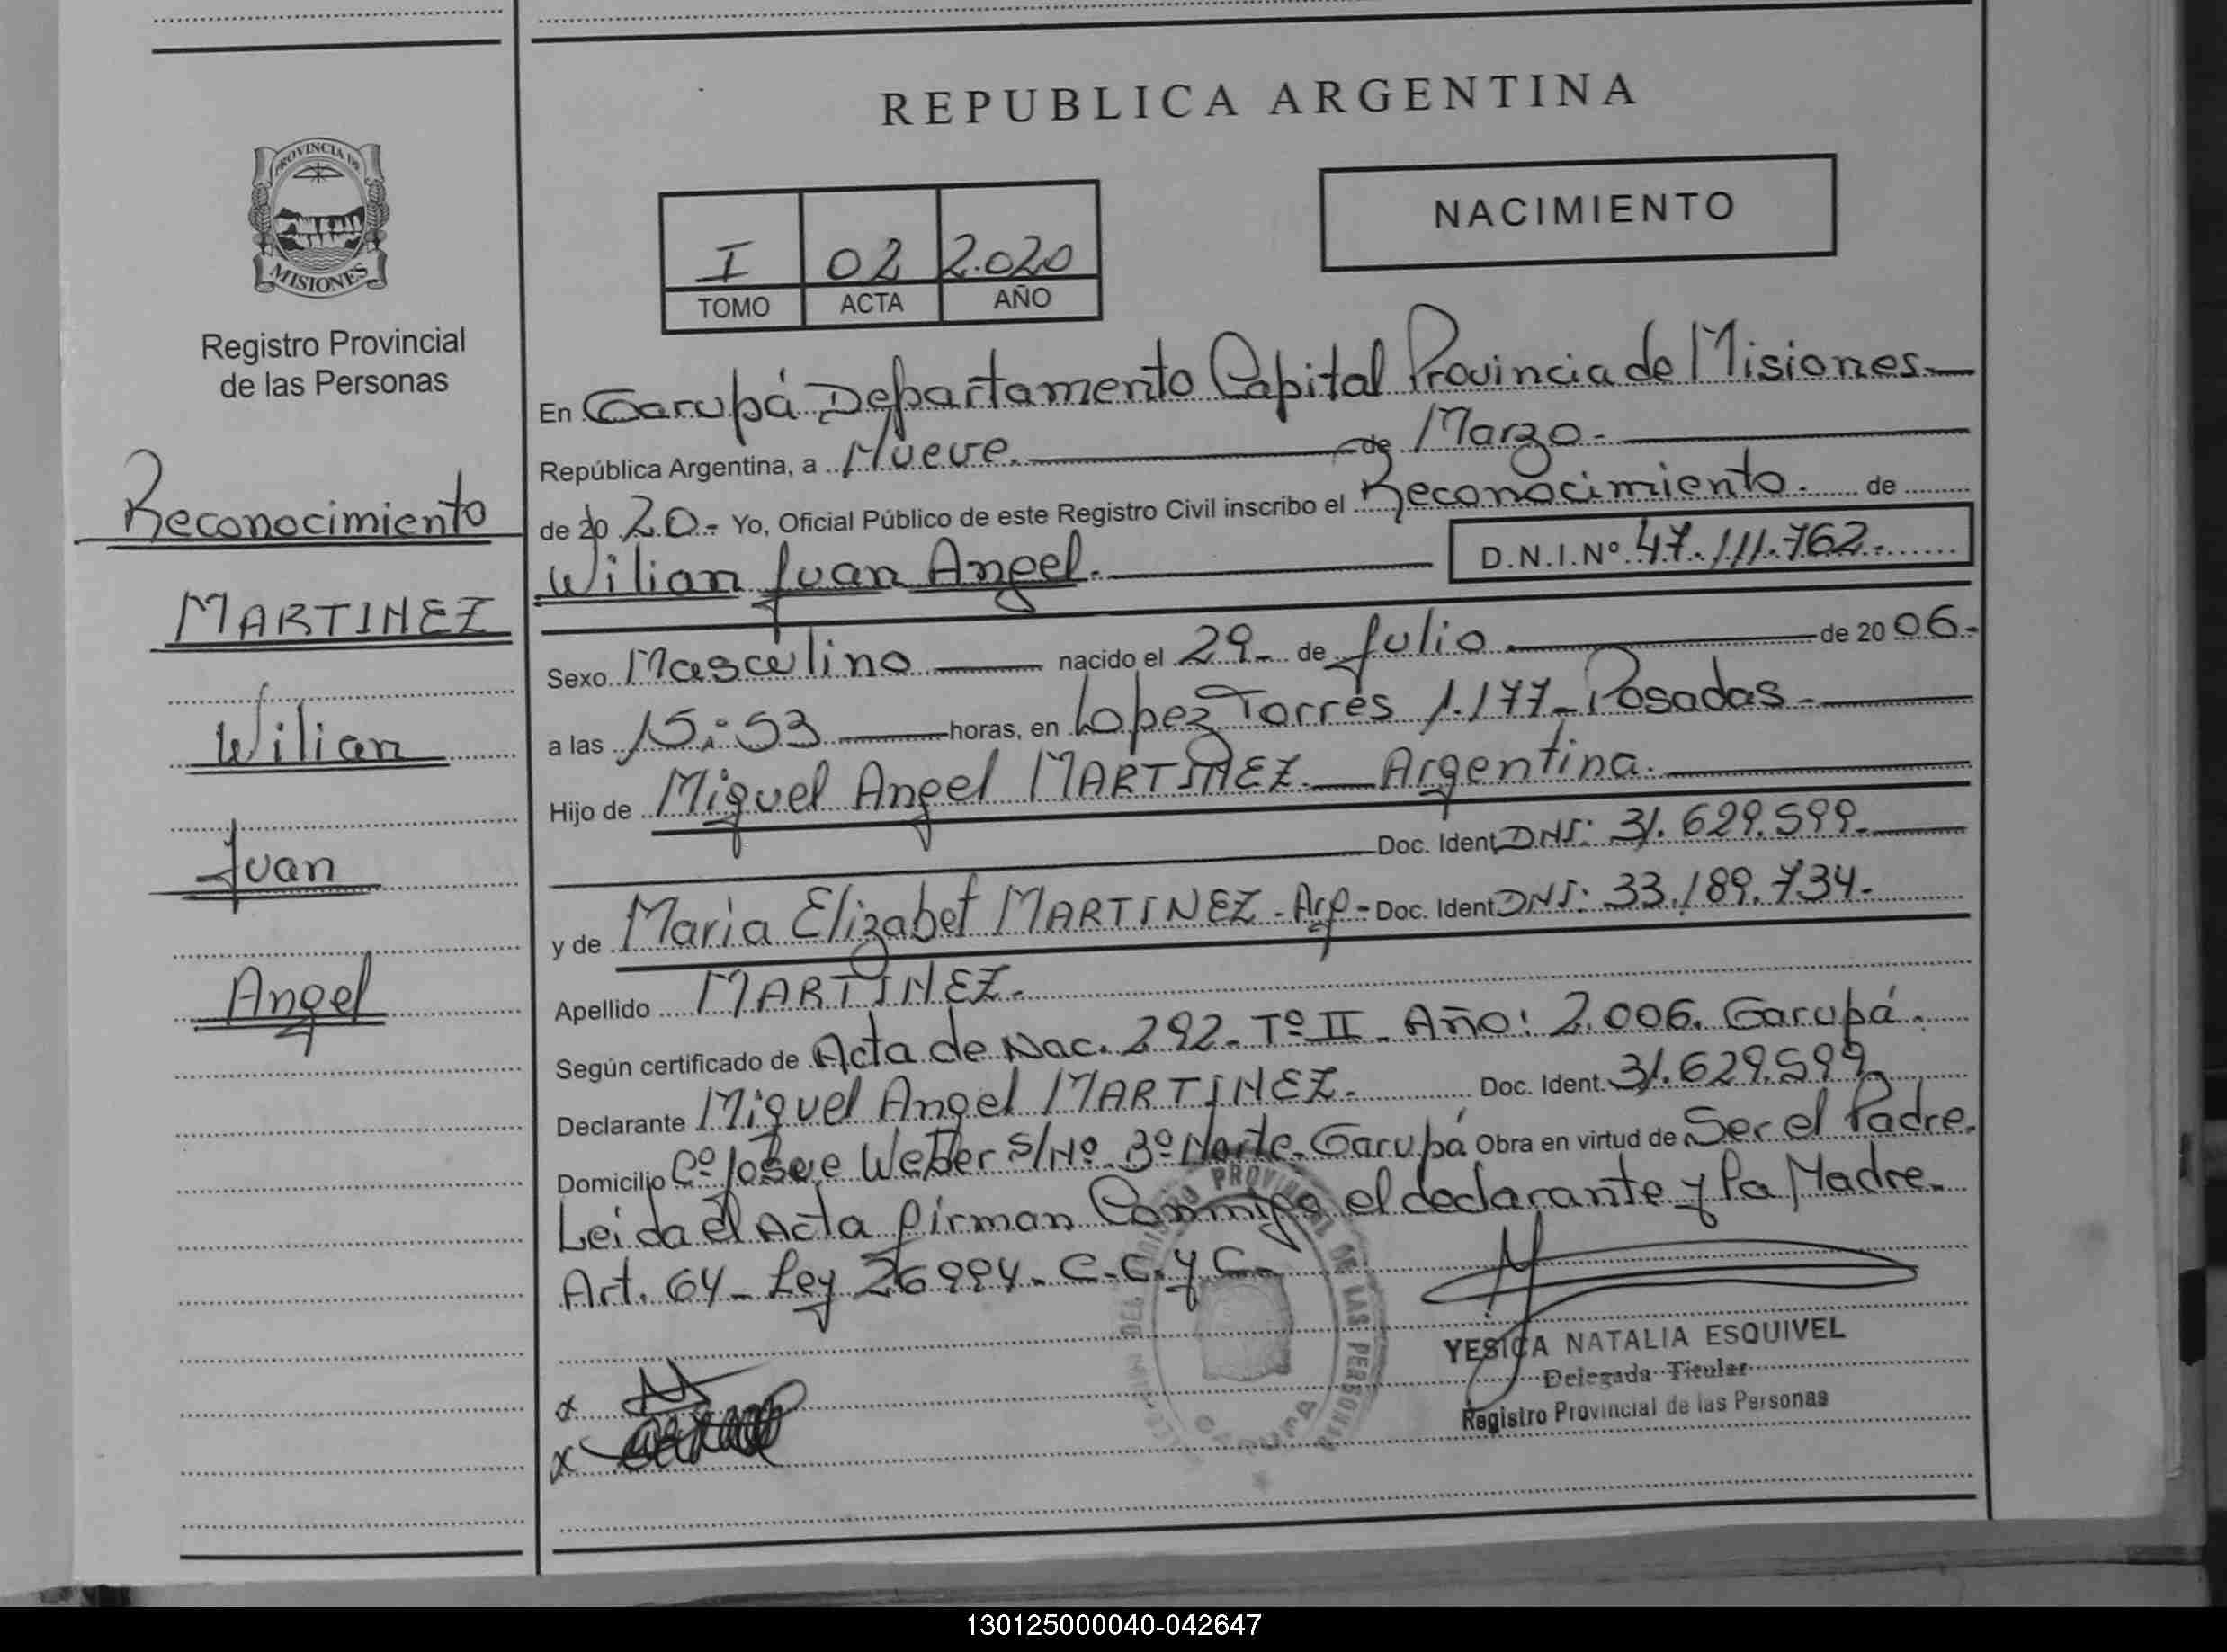 REPUBLICA ARGENTINA
PROVINCIA DE
MISIONES
Registro Provincial
de las Personas
Reconocimiento
MARTINEZ
Wilian
Juan
Angel
I 02 2.020
TOMO ACTA AÑO
NACIMIENTO
En Garupá Departamento Capital Provincia de Misiones.
República Argentina, a Nueve. de Marzo.
de 20 20.- Yo, Oficial Público de este Registro Civil inscribo el Reconocimiento. de
Wilian Juan Angel. D.N.I.Nº 47.111.762.
Sexo Masculino nacido el 29 de Julio de 20 06.
a las 15:53 horas, en Lopez Torres 1.177 - Posadas.
Hijo de Miguel Angel MARTINEZ. Argentina.
Doc. Ident DNI: 31.629.599.
y de Maria Elizabet MARTINEZ - Arg - Doc. Ident DNI: 33.189.734.
Apellido MARTINEZ.
Según certificado de Acta de Nac. 292 - Tº II - Año: 2.006. Garupá.
Declarante Miguel Angel MARTINEZ. Doc. Ident. 31.629.599
Domicilio Cº Weber S/Nº Bº Norte. Garupá Obra en virtud de Ser el Padre.
Leida el Acta firman Conmigo el declarante y la Madre.
Art. 64 - Ley 26994 - C.C.y C.
YESICA NATALIA ESQUIVEL
Delegada Titular
Registro Provincial de las Personas
130125000040-042647